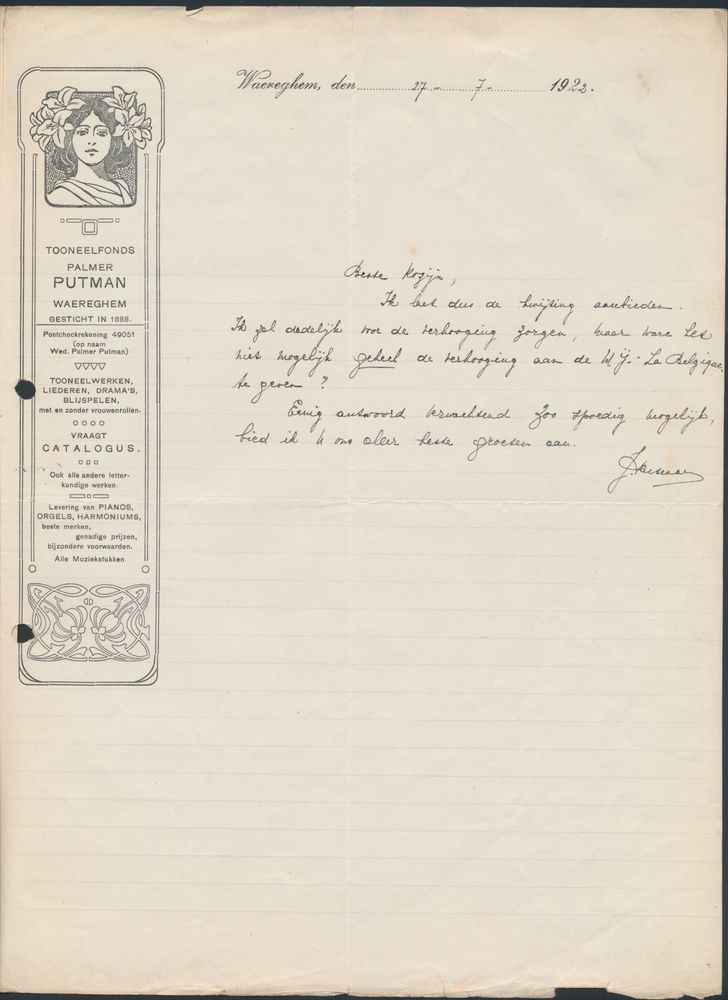 Waereghem, den 27 - 7 - 1922.
TOONEELFONDS
PALMER
PUTMAN
WAEREGHEM
GESTICHT IN 1888.
Postcheckrekening 49051
(op naam
Wed. Palmer Putman)
TOONEELWERKEN,
LIEDEREN, DRAMA'S,
BLIJSPELEN,
met en zonder vrouwenrollen.
VRAAGT
CATALOGUS.
Ook alle andere letter-
kundige werken.
Levering van PIANOS,
ORGELS, HARMONIUMS,
beste merken,
genadige prijzen,
bijzondere voorwaarden.
Alle Muziekstukken
Beste Kozijn,
Ik laat dus de kwijting aanbieden.
Ik zal dadelijk voor de verhooging zorgen, maar ware het
niet mogelijk geheel de verhooging aan de Mij.- La Belgique
te geven ?
Eenig antwoord verwachtend zoo spoedig mogelijk,
bied ik U ons aller beste groeten aan.